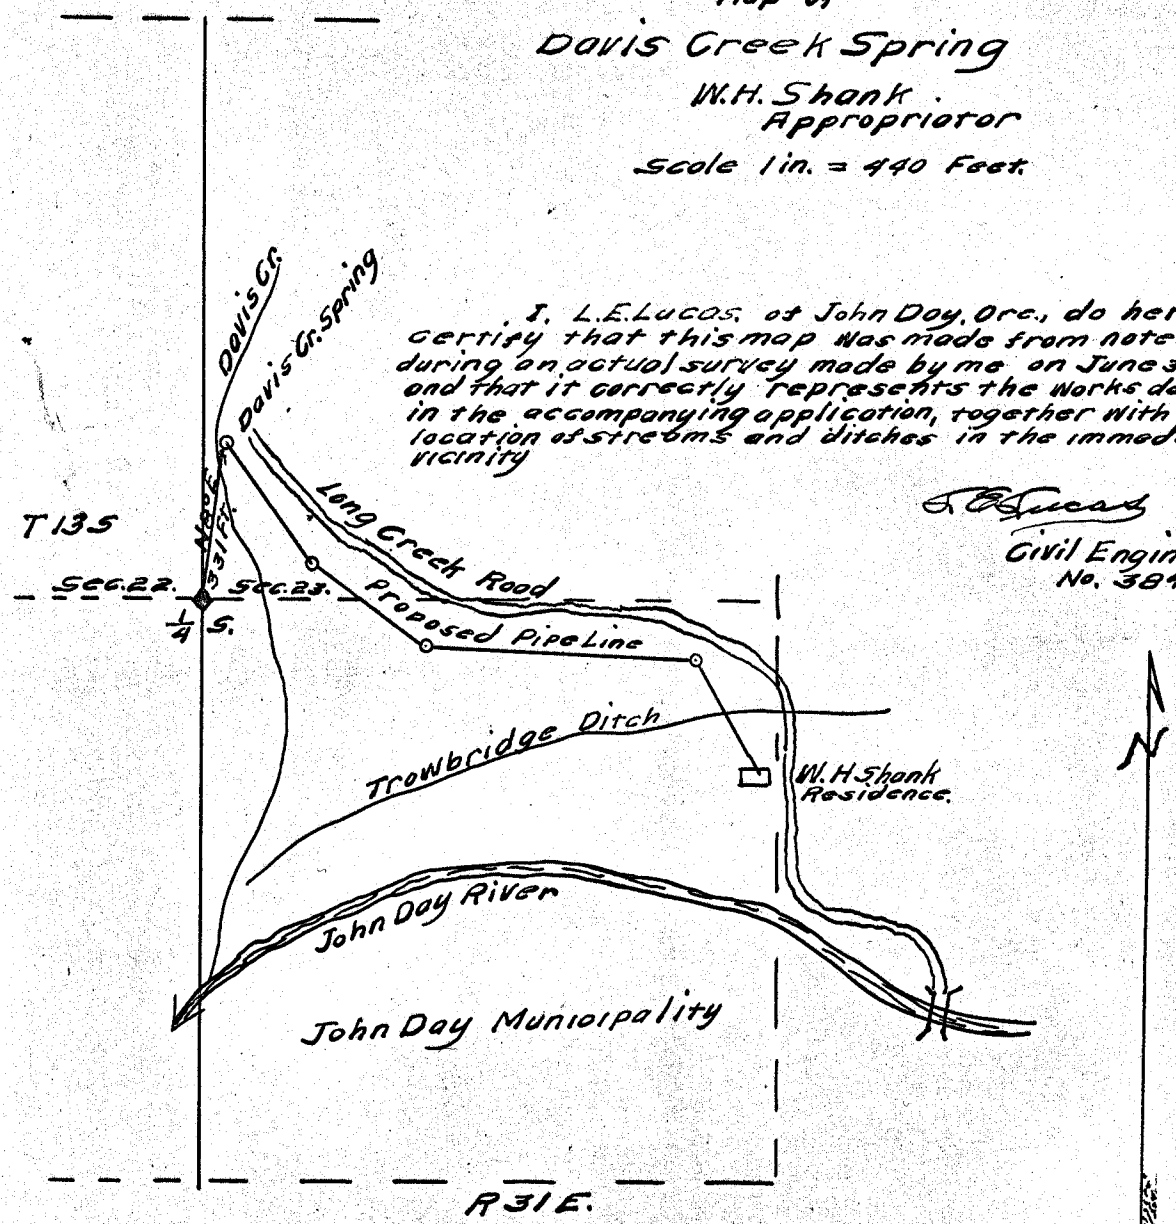 Map of
Davis Creek Spring
W.H. Shank.
Appropriator
Scale 1 in. = 440 Feet.
Davis Cr.
Davis Cr. Spring
I. L.E. Lucas. of John Day, Ore., do her
certify that this map was made from note
during an actual survey made by me on June 3
and that it correctly represents the works de
in the accompanying application, together with
location of streams and ditches in the immed
vicinity
L E Lucas
Civil Engin
No. 389
Long Creek Road
T 13 S
N 8° E
331 Ft.
Sec. 22. Sec. 23.
1/4 S.
Proposed Pipe Line
Trowbridge Ditch
W.H Shank
Residence.
N
John Day River
John Day Municipality
R 31 E.